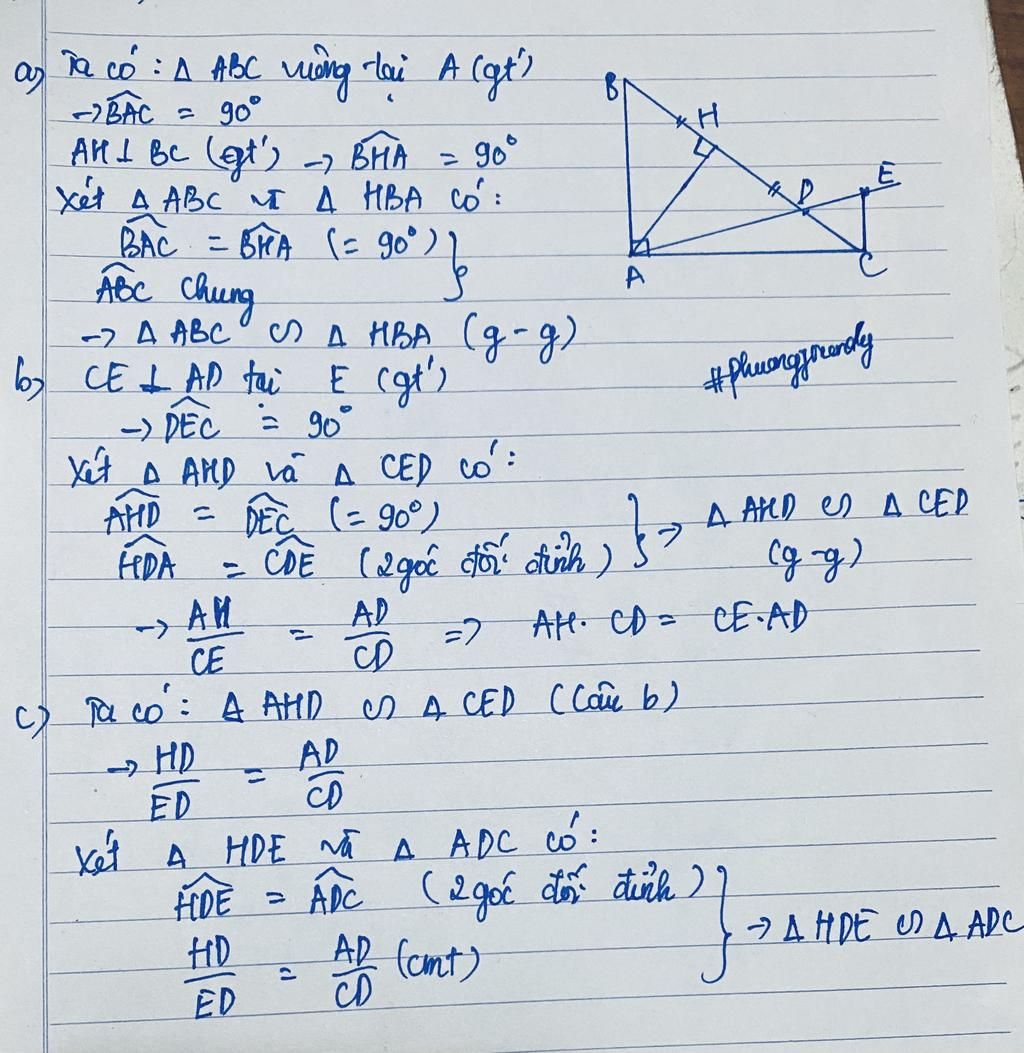 a) Ta có: Δ ABC vuông tại A (gt)
→ \widehat{BAC} = 90°
AH ⊥ BC (gt) → \widehat{BHA} = 90°
Xét Δ ABC và Δ HBA có:
\widehat{BAC} = \widehat{BHA} (= 90°) }
\widehat{ABC} chung
→ Δ ABC ∽ Δ HBA (g-g)
B
H
D
E
A
C
#phuongjrendy
b) CE ⊥ AD tại E (gt)
→ \widehat{DEC} = 90°
Xét Δ AHD và Δ CED có:
\widehat{AHD} = \widehat{DEC} (= 90°)
\widehat{HDA} = \widehat{CDE} (2 góc đối đỉnh) } → Δ AHD ∽ Δ CED
(g-g)
→ \frac{AH}{CE} = \frac{AD}{CD} => AH. CD = CE.AD
c) Ta có: Δ AHD ∽ Δ CED (Câu b)
→ \frac{HD}{ED} = \frac{AD}{CD}
Xét Δ HDE và Δ ADC có:
\widehat{HDE} = \widehat{ADC} (2 góc đối đỉnh)
\frac{HD}{ED} = \frac{AD}{CD} (cmt) } → Δ HDE ∽ Δ ADC